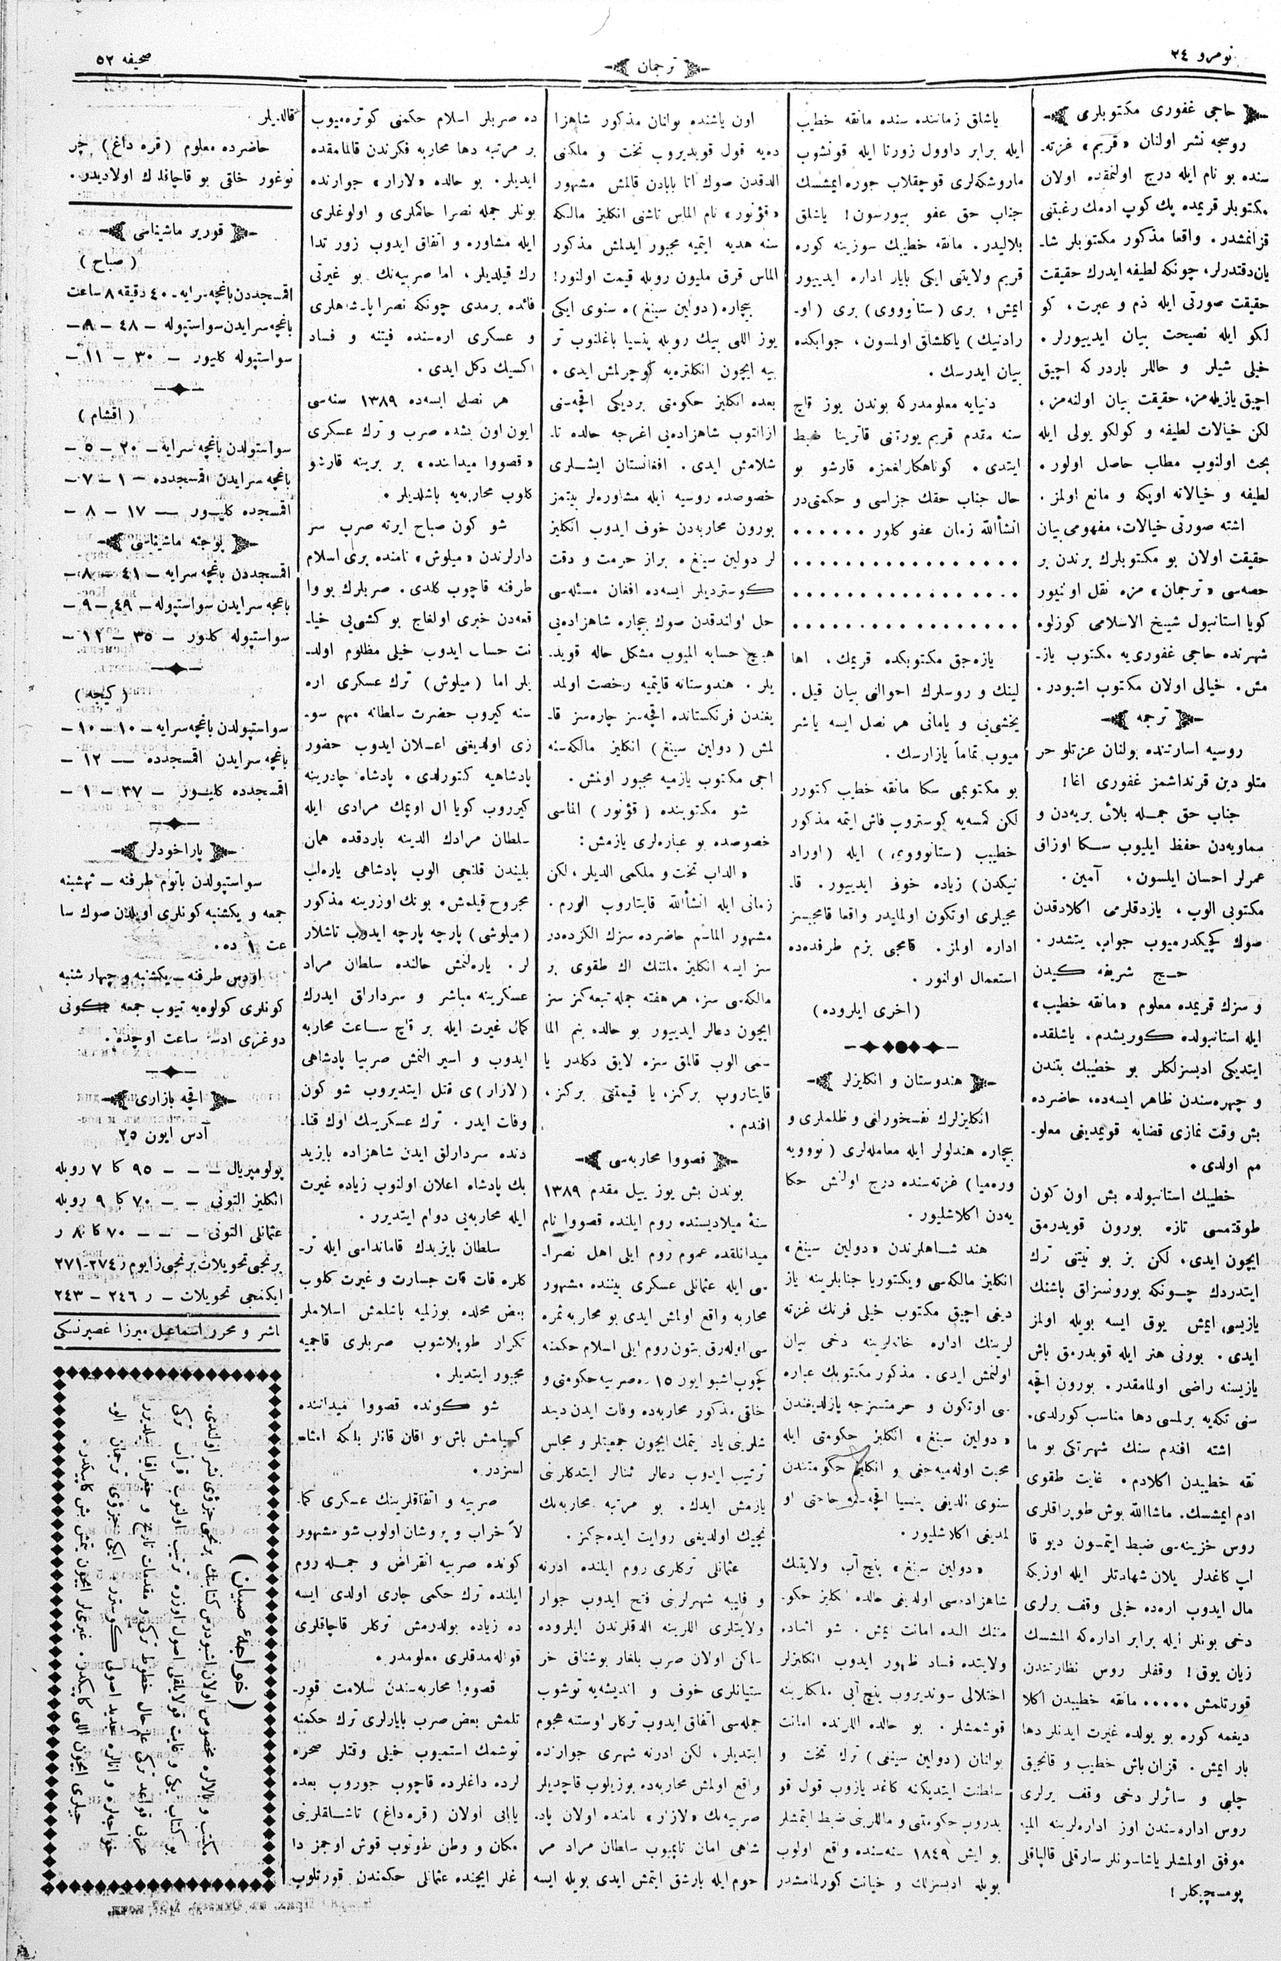 نومرو ٢٤
ترجمان
صحيفه ٥٢
حاجى غفورى مكتوبلرى
روسجه نشر اولنان «قريم» غزته‌
سنده بو نام ايله درج اولنمقده اولان
مكتوبلر قريمده پك كوپ ادمك رغبتنى
قزانمشدر. واقعا مذكور مكتوبلر شا‌
يان دقتدرلر، چونكه لطيفه ايدرك حقيقت
حقيقت صورتى ايله ذم و عبرت، كو
لكو ايله نصيحت بيان ايدييورلر.
خيلى شيلر و حاللر باردركه اچيق
اچيق يازيله‌مز، حقيقت بيان اولنه‌مز،
لكن خيالات لطيفه و كولكو يولى ايله
بحث اولنوب مطلب حاصل اولور.
لطيفه و خيالاته اوپكه و مانع اولمز.
اشته صورتى خيالات، مفهومى بيان
حقيقت اولان بو مكتوبلرك برندن بر
حصه‌سى «ترجمان» مزه نقل اولنيور
كويا استانبول شيخ الاسلامى كوزلوه
شهرنده حاجى غفورى‌يه مكتوب ياز‌
مش. خيالى اولان مكتوب اشبودر.
ترجمه
روسيه اسارتنده بولنان عزتلو حر
متلو دين قرنداشمز غفورى اغا!
جناب حق جمله بلائ بريه‌دن و
سماويه‌دن حفظ ايليوب سكا اوزاق
عمرلر احسان ايلسون، آمين.
مكتوبى الوب، يازدقلرمى اكلادقدن
صوك كچيكدرميوب جواب يتشدر.
حج شريفه كيدن
و سزك قريمده معلوم «مانقه خطيب»
ايله استانبولده كوريشدم. ياشلقده
ايتديكى ادبسزلكلر بو خطيبك بتندن
و چهره‌سندن ظاهر ايسه‌ده، حاضرده
بش وقت نمازى قضايه قويمديغى معلو‌
مم اولدى.
خطيبك استانبولده بش اون كون
طوقتمسى تازه بورون قويدرمق
ايچون ايدى. لكن بز بو نيتنى ترك
ايتدردك چونكه بورونسزلق باشنك
يازيسى ايمش يوق ايسه بويله اولمز
ايدى. بورنى هنر ايله قويدرمق باش
يازيسنه راضى اولمامقدر. بورون اقچه
سنى تكه‌يه برلمسى دها مناسب كورلدى.
اشته افندم سنك شهرتكى بو ما
نقه خطيبدن اكلادم. غايت طقوى
ادم ايمشسك. ماشاالله بوش طوپراقلرى
روس خزينه‌سى ضبط ايتمسون ديو قا
اپ كاغدلر يلان شهادتلر ايله اوزيكه
مال ايدوب اره‌ده خيلى وقف يرلرى
دخى بونلر ايله برابر اداره‌كه المشسك
زيان يوق! وقفلر روس نظارتندن
قورتلمش..... مانقه خطيبدن اكلا
ديغمه كوره بو يولده غيرت ايدنلر دها
بار ايمش. قزان باش خطيب و قانجيق
چلبى و سائرلر دخى وقف يرلرى
روس اداره‌سندن اوز اداره‌لرينه المـ
موفق اولمشلر ياشاسونلر سارقلى قالپاقلى
پومسچيكلر!
ياشلق زماننده سنده مانقه خطيب
ايله برابر داوول زورنا ايله قونشوب
ماروشكه‌لرى قوچقلاب جوره ايمشسك
جناب حق عفو بيورسون! ياشلق
بلاليدر. مانقه خطيبك سوزينه كوره
قريم ولايتنى ايكى بايار اداره ايدييور
ايمش؛ برى (ستانووى) برى (او‌
رادنيك) ياكلشاق اولمسون، جوابكده
بيان ايدرسك.
دنيايه معلومدركه بوندن يوز قاچ
سنه مقدم قريم يورتنى قاترينا ضبط
ايتدى. كوناهكارلغمزه قارشو بو
حال جناب حقك جزاسى و حكمتى‌در
انشأالله زمان عفو كلور......
يازه‌جق مكتوبكده قريمك، اها
لينك و روسلرك احوالنى بيان قيل.
يخشى‌يى و يامانى هر نصل ايسه ياشر
ميوب تماماً يازارسك.
بو مكتوبمى سكا مانقه خطيب كتورر
لكن كمسه‌يه كوستروب فاش ايتمه مذكور
خطيب (ستانووى) ايله (اوراد
نيكدن) زياده خوف ايدييور. قا‌
مجيلرى اوتكون اولمايدر واقعا قامجيسز
اداره اولمز. قامجى بزم طرفده‌ده
استعمال اولنور.
(اخرى ايلروده)
هندوستان و انكليزلر
انكليزلرك نفسخورلغى و ظلملرى و
بيچاره هندلولر ايله معامله‌لرى (نوويه
وره‌ميا) غزته‌سنده درج اولنش حكا
يه‌دن اكلاشليور.
هند شاهلرندن «دولين سينغ»
انكليز مالكه‌سى ويكتوريا جنابلرينه ياز
ديغى اچيق مكتوب خيلى فرنك غزته
لرينك اداره خانه‌لرينه دخى بيان
اولنمش ايدى. مذكور مكتوبك عباره
سى اوتكون و حرمتسزجه يازلديغندن
«دولين سينغ» انكليز حكومتى ايله
محبت اوله‌ميه‌جغى و انكليز حكومتندن
سنوى الديغى پنسيا اقچه‌سنه حاجتى او
لمديغى اكلاشليور.
«دولين سينغ» پنچ آب ولايتنك
شاهزاده‌سى اوله‌رق حالده انكليز حكو‌
متنك النده امانت ايمش. شو اثناده
ولايتده فساد ظهور ايدوب انكليزلر
اختلالى سونديروب پنچ آبى ملكلرينه
قوشمشلر. بو حالده اللرنده امانت
بولنان (دولين سينغى) ترك تخت و
سلطنت ايتديكنه كاغد يازوب قول قو
يدروب حكومتنى و ماللرينى ضبط ايتمشلر
بو ايش ١٨٤٩ سنه‌سنده واقع اولوب
بويله ادبسزلك و خيانت كورلمامشدر
اون ياشنده بولنان مذكور شاهزا
ده‌يه قول قويديروب تخت و ملكنى
الدقدن صوك اتا بابادن قالمش مشهور
«قؤنور» نام الماس تاشنى انكليز مالكه
سنه هديه ايتميه مجبور ايدلمش مذكور
الماس قرق مليون روبله قيمت اولنور!
بيچاره (دولين سينغ) ه سنوى ايكى
يوز اللى بيك روبله پنسيا باغلنوب تر
بيه ايچون انكلتره‌يه كوچرلمش ايدى.
بعده انكليز حكومتى برديكى اقچه‌نى
ازالتوب شاهزاده‌يى اغرجه حالده تا‌
شلامش ايدى. افغانستان ايشلرى
خصوصده روسيه ايله مشاوره‌لر بيتمز
بورون محاربه‌دن خوف ايدوب انكليز
لر دولين سينغه براز حرمت و دقت
كوسترديلر ايسه‌ده افغان مسئله‌سى
حل اولندقدن صوك بيچاره شاهزاده‌يى
هيچ حسابه الميوب مشكل حاله قويد‌
يلر. هندوستانه قايتميه رخصت اولمد
يغندن فرنكستانده اقچه‌سز چاره‌سز قا‌
لمش (دولين سينغ) انكليز مالكه‌سنه
اجى مكتوب يازميه مجبور اولمش.
شو مكتوبنده (قؤنور) الماسى
خصوصده بو عباره‌لرى يازمش:
«الداب تخت و ملكمى الديلر، لكن
زمانى ايله انشأالله قايتاروب الورم.
مشهور الماسم حاضرده سزك الكزده‌در
سز ايسه انكليز ملتنك اك طقوى بر
مالكه‌سى سز، هر هفته جمله تبعه‌كز سز
ايچون دعالر ايدييور بو حالده بنم الما
سمى الوب قالمق سزه لايق دكلدر يا
قايتاروب بركز، يا قيمتنى بركز،
افندم.
قصووا محاربه‌سى
بوندن بش يوز ييل مقدم ١٣٨٩
سنهٔ ميلاديسنده روم ايلنده قصووا نام
ميدانلقده عموم روم ايلى اهل نصرا‌
سى ايله عثمانلى عسكرى بيننده مشهور
محاربه واقع اولمش ايدى بو محاربه ثمره
سى اوله‌رق بتون روم ايلى اسلام حكمنه
كچوب اشبو ايون ١٥ ده صربيه حكومتى و
خلقى مذكور محاربه‌ده وفات ايدن ديند
شلرينى ياد ايتمك ايچون جمعيتلر و مجلس
ترتيب ايدوب دعالر ثنالر ايتدكلرينى
يازمش ايدك. بو مرتبه محاربه‌نك
نچيك اولديغى روايت ايده‌جكز.
عثمانلى تركلرى روم ايلنده ادرنه
و فليبه شهرلرينى فتح ايدوب جوار
ولايتلرى اللرينه الدقلرندن ايلروده
ساكن اولان صرب بلغار بوشناق خر
ستيانلرى خوف و انديشه‌يه توشوب
جمله‌سى اتفاق ايدوب تركلر اوستنه هجوم
ايتديلر، لكن ادرنه شهرى جوارنده
واقع اولمش محاربه‌ده بوزيلوب قاچديلر
صربيه‌نك «لازار» نامنده اولان پاد‌
شاهى امان تاپيوب سلطان مراد مر
حوم ايله بارشق ايتمش ايدى بويله ايسه
ده صربلر اسلام حكمنى كوتره‌ميوب
بر مرتبه دها محاربه فكرندن قالمامقده
ايديلر. بو حالده «لازار» جوارنده
بونلر جمله نصرا حاكملرى و اولوغلرى
ايله مشاوره و اتفاق ايدوب زور تدا
رك قيلديلر، اما صربيه‌نك بو غيرتى
فائده برمدى چونكه نصرا پادشاهلرى
و عسكرى اره‌سنده فيتنه و فساد
اكسيك دكل ايدى.
هر نصل ايسه‌ده ١٣٨٩ سنه‌سى
ايون اون بشده صرب و ترك عسكرى
«قصووا ميدانده» بر برينه قارشو
كلوب محاربه‌يه باشلديلر.
شو كون صباح ايرته صرب سر
دارلرندن «ميلوش» نامنده برى اسلام
طرفنه قاچوب كلدى. صربلرك بو وا
قعه‌دن خبرى اولغاج بو كشى‌يى خيا‌
نت حساب ايدوب خيلى مظلوم اولد‌
يلر اما (ميلوش) ترك عسكرى اره
سنه كيروب حضرت سلطانه مهم سو‌
زى اولديغنى اعلان ايدوب حضور
پادشاهيه كتورلدى. پادشاه چادرينه
كيرروب كويا ال اوپمك مرادى ايله
سلطان مرادك الدينه باردقده همان
بليندن قلنجى الوب پادشاهى ياره‌لب
مجروح قيلمش. بونك اوزرينه مذكور
(ميلوشى) پارچه پارچه ايدوب تاشلار
لر. ياره‌لنمش حالنده سلطان مراد
عسكرينه مباشر و سردارلق ايدرك
كمال غيرت ايله بر قاچ ساعت محاربه
ايدوب و اسير النمش صربيا پادشاهى
(لازار)ى قتل ايتديروب شو كون
وفات ايدر. ترك عسكرينك اوك قنا‌
دنده سردارلق ايدن شاهزاده بايزيد
بك پادشاه اعلان اولنوب زياده غيرت
ايله محاربه‌يى دوام ايتديرر.
سلطان بايزيدك قامانداسى ايله تر‌
كلره قات قات جسارت و غيرت كلوب
بعض محلده بوزلميه باشلمش اسلاملر
تكرار طوپلاشوب صربلرى قاچميه
مجبور ايتديلر.
شو كونده قصووا ميداننده
كسيلمش باش و اقان قانلر بلكه امثا‌
لسزدر.
صربيه و اتفاقلرينك عسكرى كما‌
لاً خراب و پريشان اولوب شو مشهور
كونده صربيه انقراض و جمله روم
ايلنده ترك حكمى جارى اولدى ايسه
ده زياده بولدرمش تركلر قاچاقلرى
قواله‌مدقلرى معلومدر.
قصووا محاربه‌سندن سلامت قور‌
تلمش بعض صرب بايارلرى ترك حكمنه
توشمك استميوب خيلى وقتلر صحره
لرده داغلرده قاچوب جوروب بعده
يابانى اولان (قره داغ) تاشلقلرينى
مكان و وطن طوتوب قوش اوچمز دا
غلر ايچنده عثمانلى حكمندن قورتلوب
قالديلر
حاضرده معلوم (قره داغ) چر
نوغور خلقى بو قاچاقلرك اولاديدر.
قورير ماشيناسى
(صباح)
اقمسجددن باغچه‌سرايه ـ ٤٠ دقيقه ٨ ساعت
باغچه سرايدن سواستپوله ـ ٤٨ ـ ٩ ـ
سواستپوله كليور ـ ٣٠ ـ ١١ ـ
(اقشام)
سواستپولدن باغچه سرايه ـ ٢٠ ـ ٥ ـ
باغچه سرايدن اقمسجدده ـ ١ ـ ٧ ـ
اقمسجدده كليور ـ ١٧ ـ ٨ ـ
پوچته ماشيناسى
اقمسجددن باغچه سرايه ـ ٤١ ـ ٨ ـ
باغچه سرايدن سواستپوله ـ ٤٩ ـ ٩ ـ
سواستپوله كليور ـ ٣٥ ـ ١٢ ـ
(كيجه)
سواستپولدن باغچه سرايه ـ ١٠ ـ ١٠ ـ
باغچه سرايدن اقمسجدده ـ ١٢ ـ
اقمسجدده كليور ـ ٣٧ ـ ١ ـ
پاراخودلر
سواستپولدن باتوم طرفنه ـ شهشنبه
جمعه و يكشنبه كونلرى اويلدن صوك سا
عت ١ ده.
اودس طرفنه ـ يكشنبه و چهار شنبه
كونلرى كولوه‌يه تيوب جمعه كونى
دوغرى ادسه ساعت اوچده.
اقچه بازارى
آدس ايون ٢٥
پولومپريال ـ ـ ـ ٩٥ كا ٧ روبله
انكليز التونى ـ ـ ٧٠ كا ٩ روبله
عثمانلى التونى ـ ـ ٧٠ كا ٨ ر
برنجى تحويلات برنجى زايوم ر ٢٧٤ـ٢٧١
ايكنجى تحويلات ـ ر ٢٤٦ ـ ٢٤٣
ناشر و محرر اسماعيل ميرزا غصپرنسكى
(خواجهٔ صبيان)
مكتب و بالالره مخصوص اولان اشبو درس كتابنك برنجى جزؤى نشر اولندى.